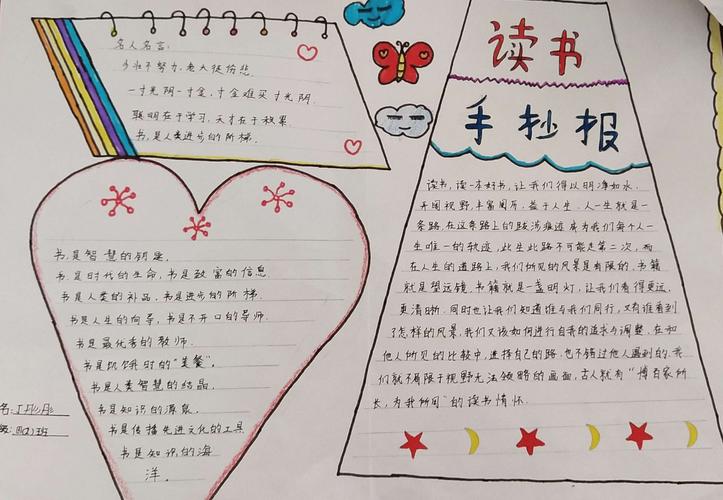 读书
手抄报
名人名言:
少壮不努力,老大徒伤悲.
一寸光阴一寸金,寸金难买寸光阴.
聪明在于学习,天才在于积累.
书,是人类进步的阶梯.
书是智慧的钥匙.
书是时代的生命,书是致富的信息
书是人类的补品,书是进步的阶梯.
书是人生的向导,书是不开口的导师.
书是最优秀的教师.
书是饥饿时的"美餐".
书是人类智慧的结晶.
书是知识的源泉.
书是传播先进文化的工具
书是知识的海
洋.
名:丁彤彤
级:四(2)班
读书,读一本好书,让我们得以明净如水,
开阔视野,丰富阅历,益于人生.人一生就是一
条路,在这条路上的跋涉痕迹成为我们每个人一
生唯一的轨迹,此生此路不可能走第二次,而
在人生的道路上,我们所见的风景是有限的.书籍
就是望远镜,书籍就是一盏明灯,让我们看得更远、
更清晰.同时也让我们知道谁与我们同行,又有谁看到
了怎样的风景,我们又该如何进行自我的追求与调整.在和
他人所见的比较中,选择自己的路,也不错过他人遇到的.我
们就不局限于视野无法领略的画面,古人就有"博百家所
长,为我所用"的读书情怀.